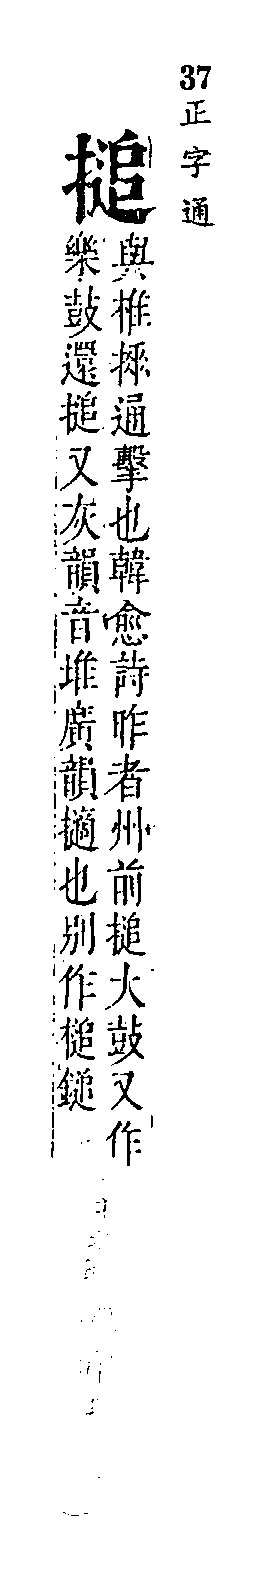 37
正字通
搥
與椎㧻通擊也韓愈詩昨者州前搥大鼓又作
樂鼓還搥又灰韻音堆廣韻擿也別作槌鎚